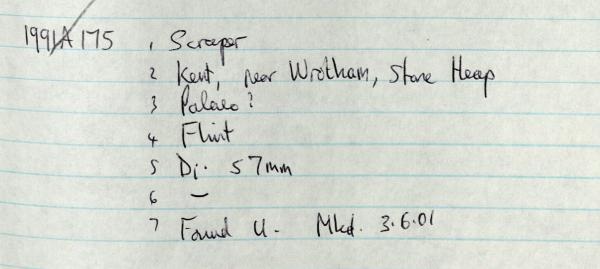 1991A175 1 Scraper
2 Kent, near Wrotham, Stone Heap
3 Palaeo?
4 Flint
5 Di. 57mm
6 –
7 Found U. Mkd. 3.6.01